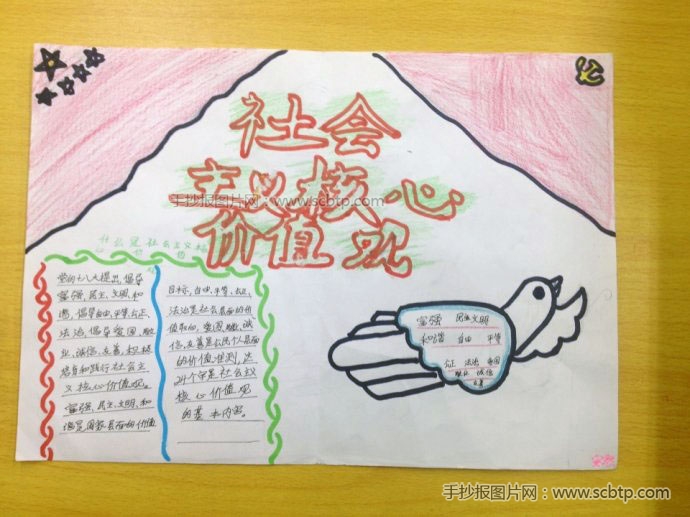 社会
主义核心
价值观
手抄报图片网：www.scbtp.com
什么是社会主义核
心价值
党的十八大提出，倡导
富强、民主、文明、和
谐，倡导自由、平等、公正、
法治，倡导爱国、敬
业、诚信、友善，积极
培育和践行社会主
义核心价值观。
富强、民主、文明、和
谐是国家层面的价值
目标，自由、平等、公正、
法治是社会层面的价
值取向，爱国、敬业、诚
信、友善是公民个人层面
的价值准则，这
24个字是社会主义
核心价值观
的基本内容。
富强 民主 文明
和谐 自由 平等
公正 法治 爱国
敬业 诚信
友善
手抄报图片网：www.scbtp.com